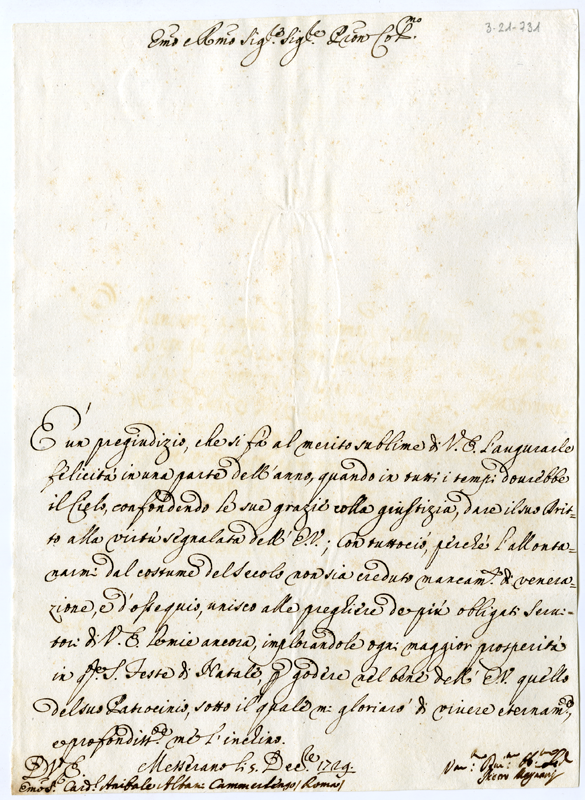 3-21-731
Emo e Rmo Sigre Sigre Pron Colmo
È un pregiudizio, che si fà al merito sublime di V. E. l'augurarle
felicità in una parte dell'anno, quando in tutti i tempi dovrebbe
il Cielo, confondendo le sue grazie colla giustizia, dare il suo drit-
to alla virtù segnalata dell'E.V.; con tuttociò, perché l'allonta-
narmi dal costume del secolo non sia creduto mancamto di venera-
zione, e d'ossequio, unisco alle preghiere de più obligati servi-
tori di V. E. le mie ancora, implorandole ogni maggior prosperità
in qste S. Feste di Natale, p godere nel bene dell'E.V. quello
del suo Patrocinio, sotto il quale mi gloriarò di vivere eternamte,
e profondisste me l'inchino.
D. V. E. Messerano li 5. Decbre 1729.
Emo Sr Cardl Anibale Albani Cammerlengo / Roma /